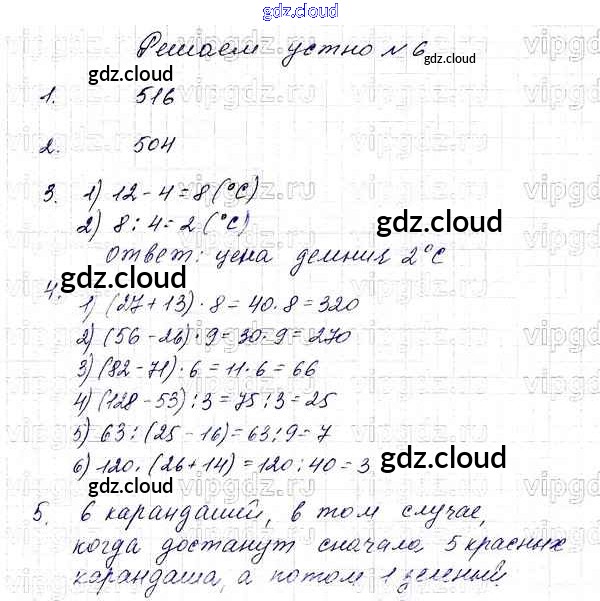 gdz.cloud
Решаем устно № 6
gdz.cloud
1. 516
2. 504
3. 1) 12 - 4 = 8 (°C)
2) 8 : 4 = 2 (°C)
gdz.cloud
Ответ: цена делния 2°C
gdz.cloud
4. 1) (27 + 13) · 8 = 40 · 8 = 320
2) (56 - 26) · 9 = 30 · 9 = 270
3) (82 - 71) · 6 = 11 · 6 = 66
4) (128 - 53) : 3 = 75 : 3 = 25
gdz.cloud
5) 63 : (25 - 16) = 63 : 9 = 7
6) 120 : (26 + 14) = 120 : 40 = 3
gdz.cloud
gdz.cloud
5. 6 карандашей, в том случае,
когда достанут сначала 5 красных
карандаша, а потом 1 зеленый.
gdz.cloud
vipgdz.ru